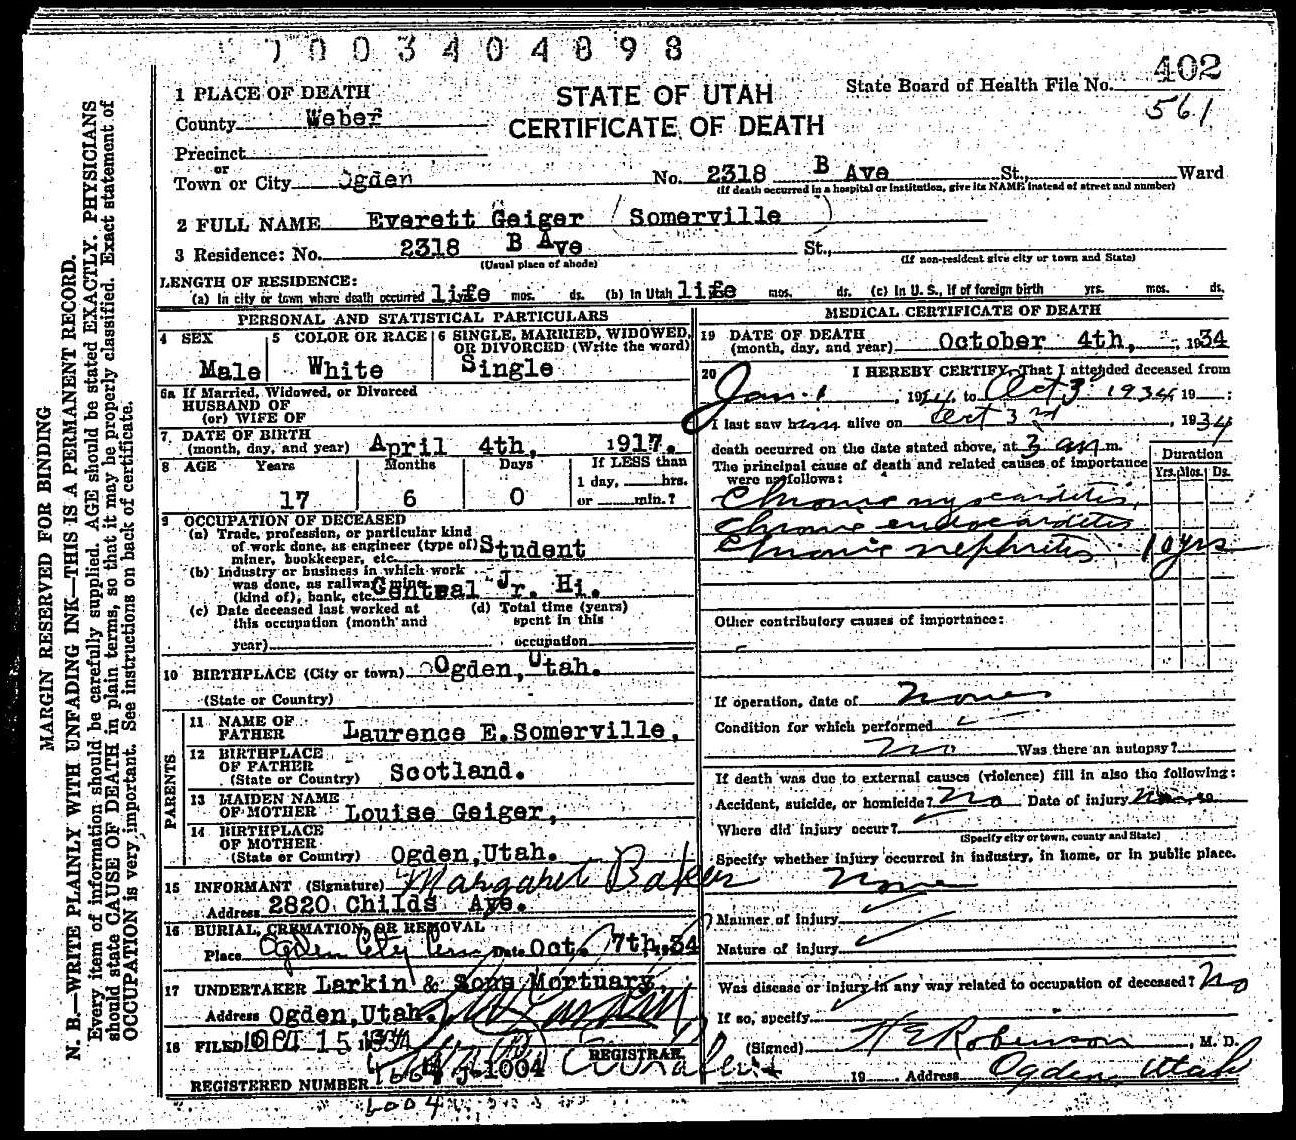 7003404898
402
State Board of Health File No.
561
STATE OF UTAH
CERTIFICATE OF DEATH
1 PLACE OF DEATH
County Weber
Precinct
or
Town or City Ogden No. 2318 B Ave St., Ward
(If death occurred in a hospital or institution, give its NAME instead of street and number)
2 FULL NAME Everett Geiger (Somerville)
3 Residence: No. 2318 B Ave St.,
(Usual place of abode) (If non-resident give city or town and State)
LENGTH OF RESIDENCE:
(a) In city or town where death occurred life mos. ds. (b) In Utah life mos. ds. (c) In U. S., if of foreign birth yrs. mos. ds.
PERSONAL AND STATISTICAL PARTICULARS
4 SEX 5 COLOR OR RACE 6 SINGLE, MARRIED, WIDOWED,
OR DIVORCED (Write the word)
Male White Single
6a If Married, Widowed, or Divorced
HUSBAND OF
(or) WIFE OF
7 DATE OF BIRTH
(month, day, and year) April 4th, 1917.
8 AGE Years Months Days If LESS than
1 day, hrs.
17 6 0 or min.?
9 OCCUPATION OF DECEASED
(a) Trade, profession, or particular kind
of work done, as engineer (type of) Student
miner, bookkeeper, etc.
(b) Industry or business in which work
was done, as railway, mine
(kind of), bank, etc. Central Jr. Hi.
(c) Date deceased last worked at (d) Total time (years)
this occupation (month and spent in this
year) occupation
10 BIRTHPLACE (City or town) Ogden, Utah.
(State or Country)
PARENTS
11 NAME OF
FATHER Laurence E. Somerville,
12 BIRTHPLACE
OF FATHER
(State or Country) Scotland.
13 MAIDEN NAME
OF MOTHER Louise Geiger,
14 BIRTHPLACE
OF MOTHER
(State or Country) Ogden, Utah.
15 INFORMANT (Signature) Margaret Baker
Address 2820 Childs Ave.
16 BURIAL, CREMATION, OR REMOVAL
Place Ogden City Cem Date Oct. 7th, 34
17 UNDERTAKER Larkin & Sons Mortuary,
Address Ogden, Utah.
18 FILED OCT 15 1934
REGISTRAR
REGISTERED NUMBER 1004
1004
MEDICAL CERTIFICATE OF DEATH
19 DATE OF DEATH
(month, day, and year) October 4th, 1934
20 I HEREBY CERTIFY, That I attended deceased from
Jan. 1, to Oct 3 1934 19 :
I last saw him alive on Oct 3rd, 1934
death occurred on the date stated above, at 3 am m.
The principal cause of death and related causes of importance
were as follows:
Duration
Yrs. Mos. Ds.
Chronic myocarditis,
Chronic endocarditis
Chronic nephritis 10 yrs
Other contributory causes of importance:
If operation, date of None
Condition for which performed
No Was there an autopsy?
If death was due to external causes (violence) fill in also the following:
Accident, suicide, or homicide? No Date of injury None 19
Where did injury occur?
(Specify city or town, county and State)
Specify whether injury occurred in industry, in home, or in public place.
None
Manner of injury
Nature of injury
Was disease or injury in any way related to occupation of deceased? No
If so, specify
(Signed) H E Robinson, M. D.
19 Address Ogden, Utah
MARGIN RESERVED FOR BINDING
N. B.—WRITE PLAINLY WITH UNFADING INK—THIS IS A PERMANENT RECORD.
Every item of information should be carefully supplied. AGE should be stated EXACTLY. PHYSICIANS
should state CAUSE OF DEATH in plain terms, so that it may be properly classified. Exact statement of
OCCUPATION is very important. See instructions on back of certificate.